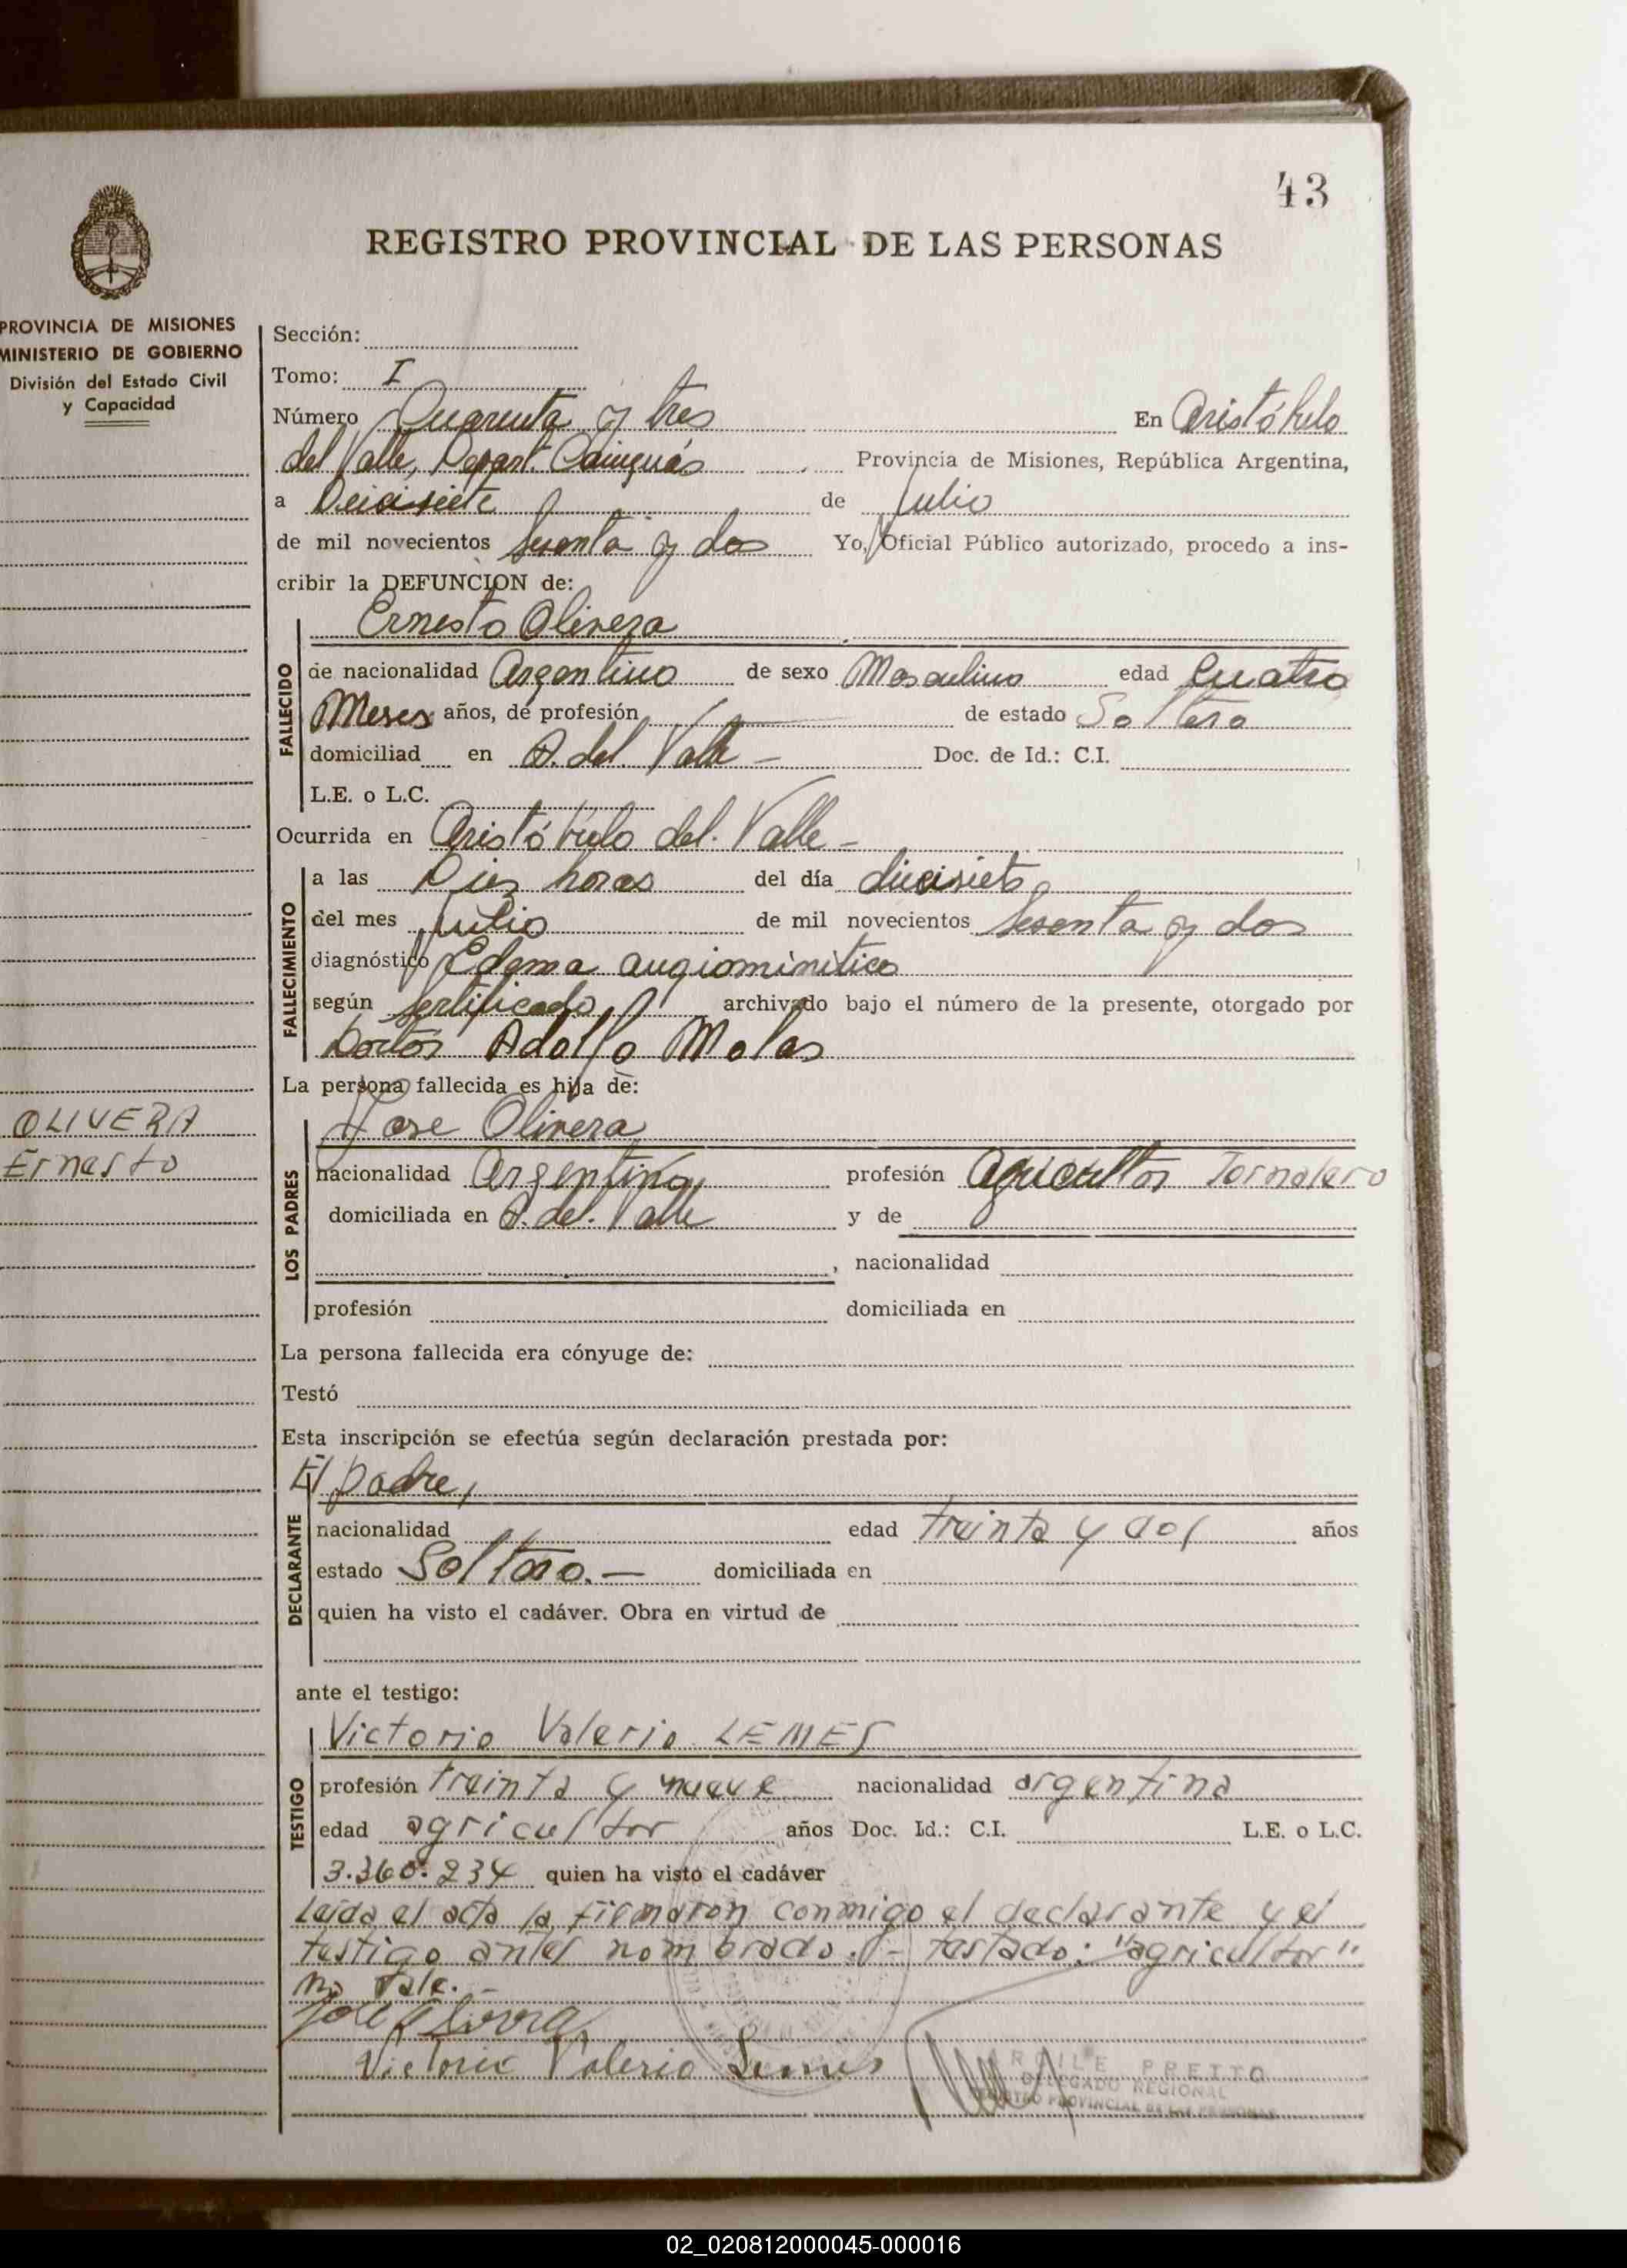 43
REGISTRO PROVINCIAL DE LAS PERSONAS
PROVINCIA DE MISIONES
MINISTERIO DE GOBIERNO
División del Estado Civil
y Capacidad
OLIVERA
Ernesto
Sección:
Tomo: I
Número Cuarenta y tres En Aristóbulo
del Valle, Depart. Cainguás Provincia de Misiones, República Argentina,
a Deicisiete de Julio
de mil novecientos sesenta y dos Yo, Oficial Público autorizado, procedo a ins-
cribir la DEFUNCION de:
Ernesto Olivera
FALLECIDO
de nacionalidad Argentino de sexo Masculino edad Cuatro
Meses años, de profesión de estado Soltero
domiciliad en A. del Valle - Doc. de Id.: C.I.
L.E. o L.C.
Ocurrida en Aristóbulo del Valle -
FALLECIMIENTO
a las Diez horas del día diecisiete
del mes Julio de mil novecientos sesenta y dos
diagnóstico Edema
según Sertificado archivado bajo el número de la presente, otorgado por
Doctor Adolfo Molas
La persona fallecida es hija de:
Jose Olivera
LOS PADRES
nacionalidad Argentino profesión Agricultor Jornalero
domiciliada en A. del Valle y de
, nacionalidad
profesión domiciliada en
La persona fallecida era cónyuge de:
Testó
Esta inscripción se efectúa según declaración prestada por:
El padre,
DECLARANTE
nacionalidad edad treinta y dos años
estado Soltero.— domiciliada en
quien ha visto el cadáver. Obra en virtud de
ante el testigo:
Victorio Valerio LEMES
TESTIGO
profesión treinta y nueve nacionalidad argentina
edad agricultor años Doc. Id.: C.I. L.E. o L.C.
3.360.234 quien ha visto el cadáver
Leída el acta la firmaron conmigo el declarante y el
testigo antes nombrado.- testado: "agricultor"
no vale.-
Jose Olivera
Victorio Valerio Lemes
PREITO
DELEGADO REGIONAL
REGISTRO PROVINCIAL DE LAS PERSONAS
02_020812000045-000016